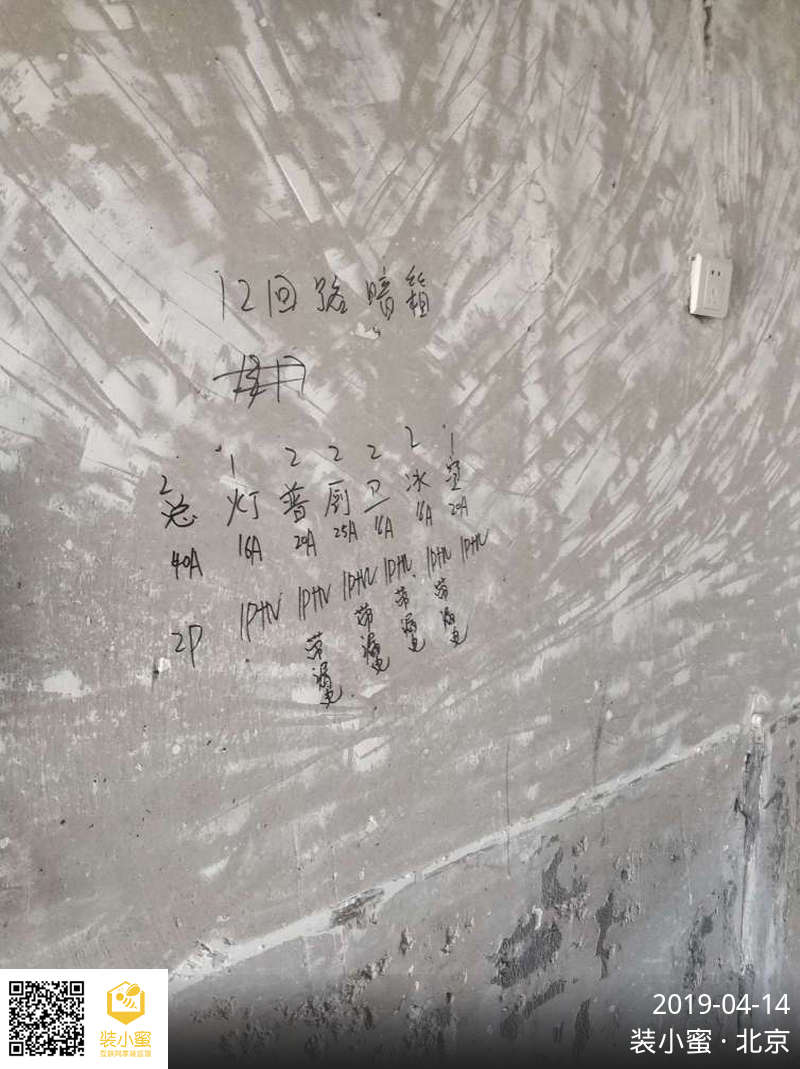 12回路暗箱
2 1 2 2 2 2 1
总 灯 普 厨 卫 冰 空
40A 16A 20A 25A 16A 16A 20A
2P 1P+N 1P+N 1P+N 1P+N 1P+N 1P+N
带漏电 带漏电 带漏电 带漏电
装小蜜
互联网家装监理
2019-04-14
装小蜜·北京